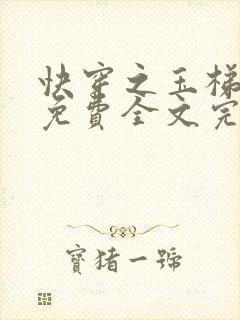 快穿之玉梯
免費全文完
寶猪一號